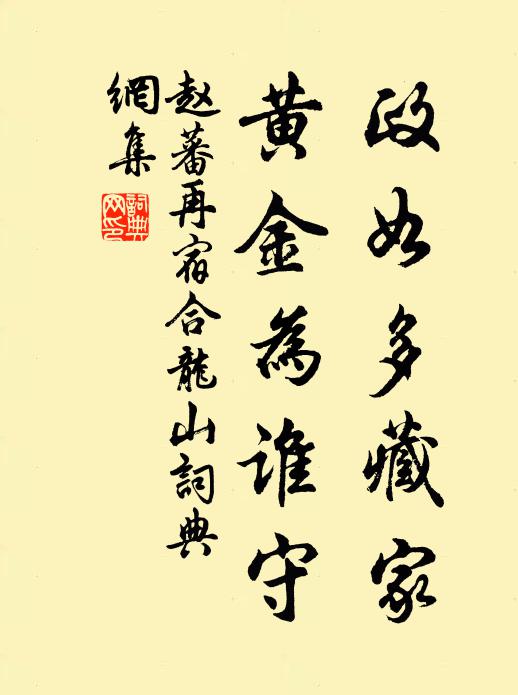 政如多藏家
黄金為誰守
赵蕃再宿合龍山詞典
網集
詞典
网印